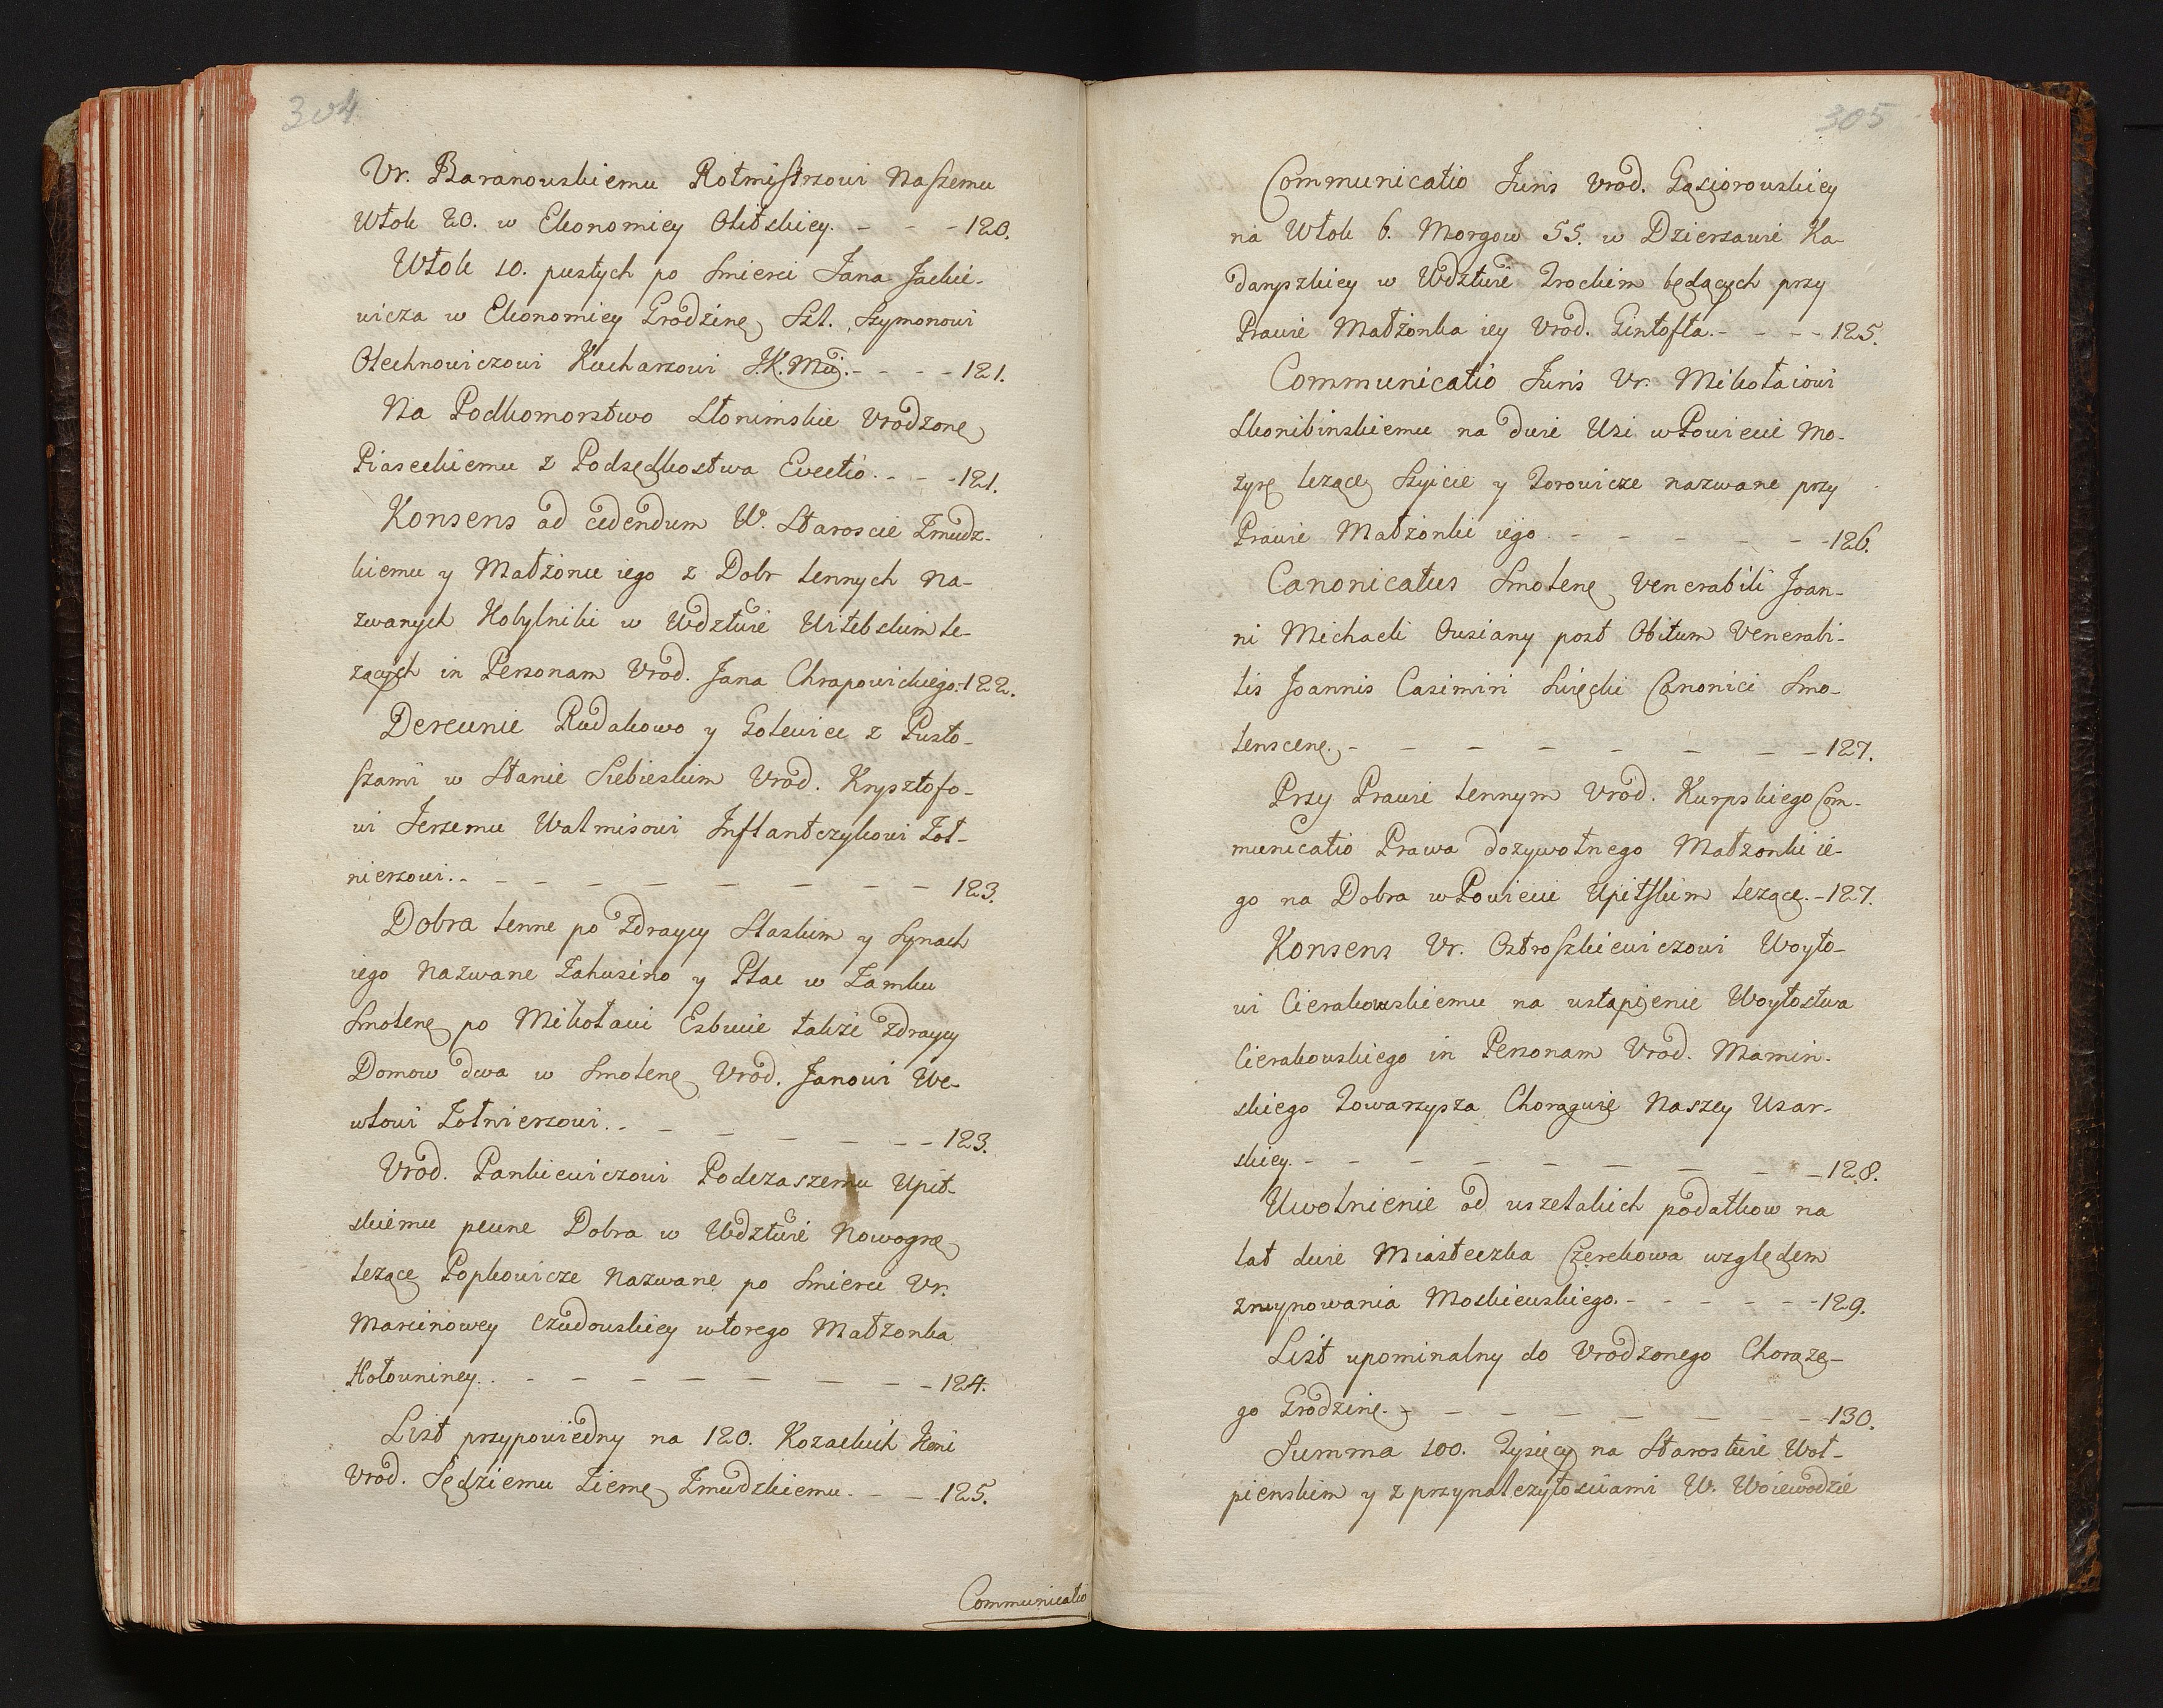 304
Vr. Baranowskiemu Rotmistrzowi Naszemu
Włok 20. w Ekonomiey Olitskiey. - - - 120.
Włok 10. pustych po smierci Jana Jackie-
wicza w Ekonomiey Grodzinę Szl. Szymonowi
Olechnowiczowi Kucharzowi J.K.Mći. - - - - 121.
Na Podkomorstwo Słonimskie Vrodzonę
Piaseckiemu z Podsędkostwa Evectio. - - - 121.
Konsens ad cedendum W. Staroscie Zmudz-
kiemu y Małżonce iego z Dobr lennych na-
zwanych Kobylniki w Wdztwie Witebskim le-
zących in Personam Vrod. Jana Chrapowickiego. - 122.
Derewnie Rudakowo y Golewice z Pusto-
szami w Stanie Siebieskim Vrod. Krysztofo-
wi Jerzemu Walmisowi Inflantczykowi Zoł-
nierzowi. - - - - - - - - - 123.
Dobra lenne po Zdraycy Staskim y Synach
iego nazwane Zakusino y Plac w Zamku
Smolenę po Mikołaiu Esbuie także zdraycy
Domow dwa w Smolenę Vrod. Janowi We-
wlowi Zołnierzowi. - - - - - - - 123.
Vrod. Pankiewiczowi Podczaszemu Upit-
skiemu pewne Dobra w Wdztwie Nowogrę
lezące Popkowicze nazwane po smierci Vr.
Marcinowey Czudowskiey wtorego Małzonka
Hołowniney. - - - - - - - - 124.
List przypowiedny na 120. Kozackich Koni
Vrod. Sędziemu Ziemę Zmudzkiemu. - - - 125.
Communicatio
305
Communicatio Juris Vrod. Gąsiorowskiey
na Włok 6. Morgow 55. w Dzierzawie Ka-
daryszkiey w Wdztwie Trockim będących przy
Prawie Małżonka iey Vrod. Gintofta. - - - - 125.
Communicatio Juris Vr. Mikołaiowi
Skonibinskiemu na dwie Wsi w Powiecie Mo-
zyrę lezące Szyicie y Torowicze nazwane przy
Prawie Małżonki iego. - - - - - - 126.
Canonicatus Smolenę Venerabili Joan-
ni Michaeli Owsiany post Obitum Venerabi-
lis Joannis Casimiri Swięcki Canonici Smo-
lenscenę. - - - - - - - - 127.
Przy Prawie lennym Vrod. Kurpskiego Com-
municatio Prawa dozywotnego Małzonki ie-
go na Dobra w Powiecie Upitskim lezące. - 127.
Konsens Vr. Ostroszkiewiczowi Woyto-
wi Cierakowskiemu na ustąpienie Woytostwa
Cierakowskiego in Personam Vrod. Mamin-
skiego Towarzysza Chorągwie Naszey Usar-
skiey. - - - - - - - - - 128.
Uwolnienie od wszelakich podatkow na
lat dwie Miasteczka Czerekowa względem
zruynowania Moskiewskiego. - - - - - - 129.
List upominalny do Vrodzonego Chorąze-
go Grodzinę. - - - - - - - - 130.
Summa 100. Tysięcy na Starostwie Woł-
pienskim y z przynalezytosciami W. Woiewodzie